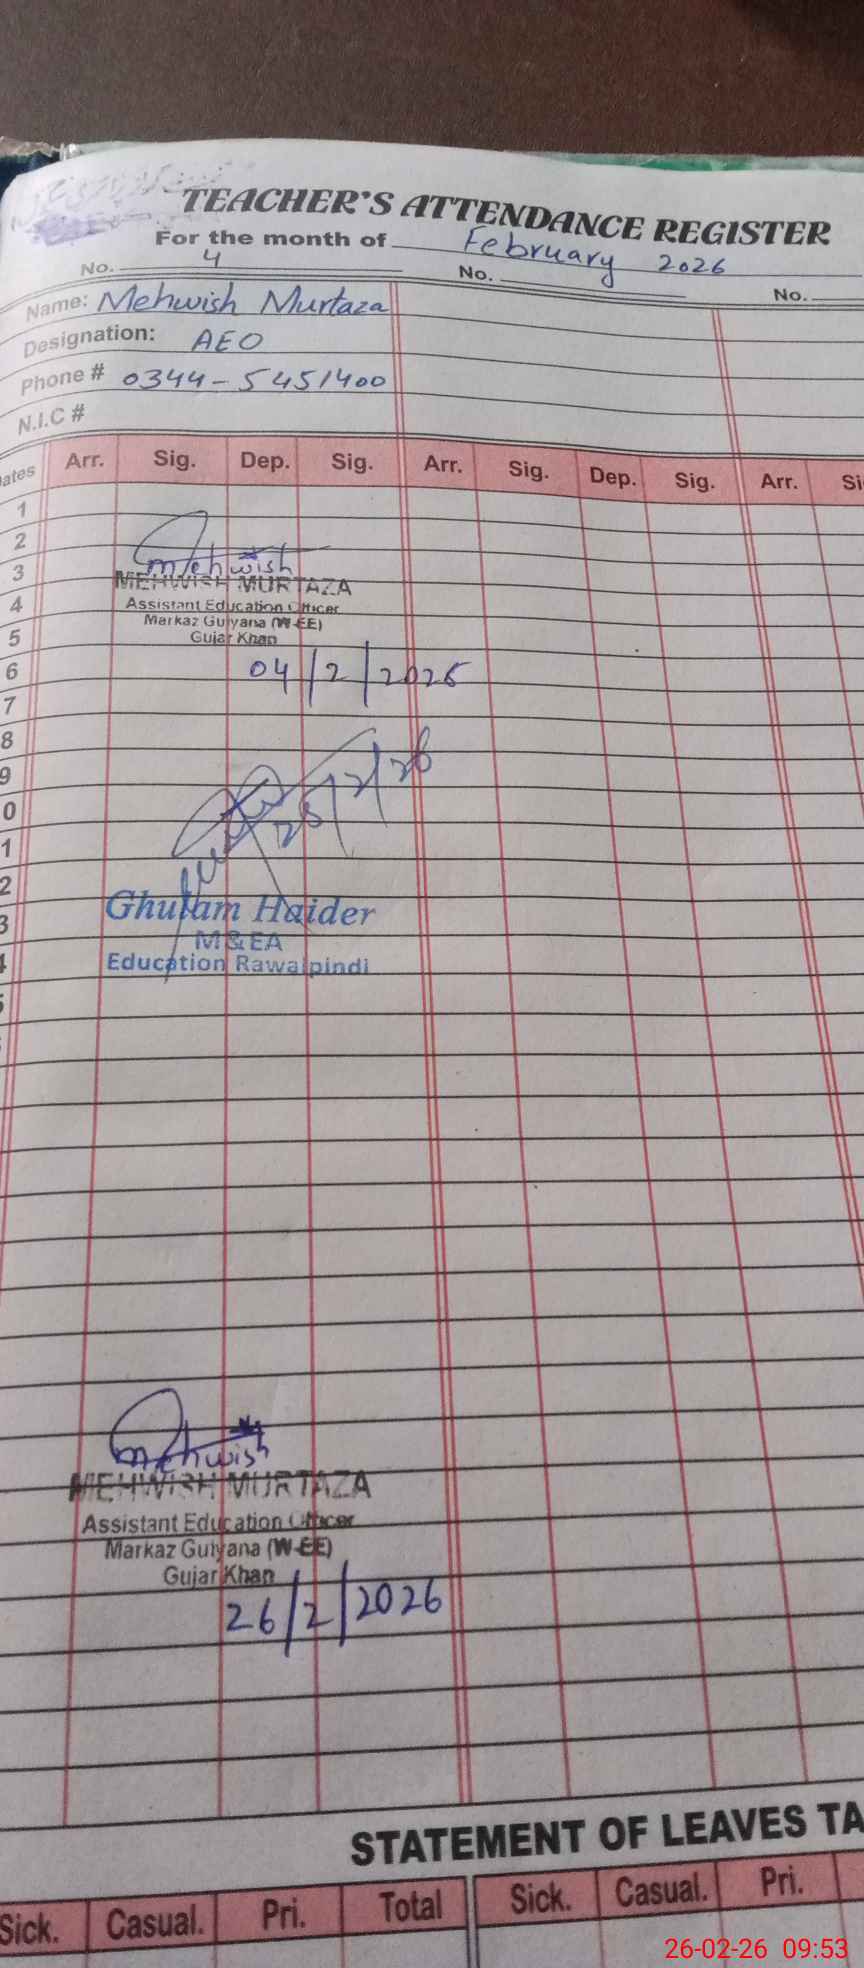 TEACHER'S ATTENDANCE REGISTER
For the month of February 2026
No. 4 No. No.
Name: Mehwish Murtaza
Designation: AEO
Phone # 0344-5451400
N.I.C #
ates Arr. Sig. Dep. Sig. Arr. Sig. Dep. Sig. Arr. Si
1
2
3
4
5
6
7
8
9
0
1
2
3
4
5
Mehwish
MEHWISH MURTAZA
Assistant Education Officer
Markaz Gulyana (W-EE)
Gujar Khan
04/2/2026
25/2/26
Ghulam Haider
M&EA
Education Rawalpindi
Mehwish
MEHWISH MURTAZA
Assistant Education Officer
Markaz Gulyana (W-EE)
Gujar Khan
26/2/2026
STATEMENT OF LEAVES TA
Sick. Casual. Pri. Total Sick. Casual. Pri.
26-02-26 09:53